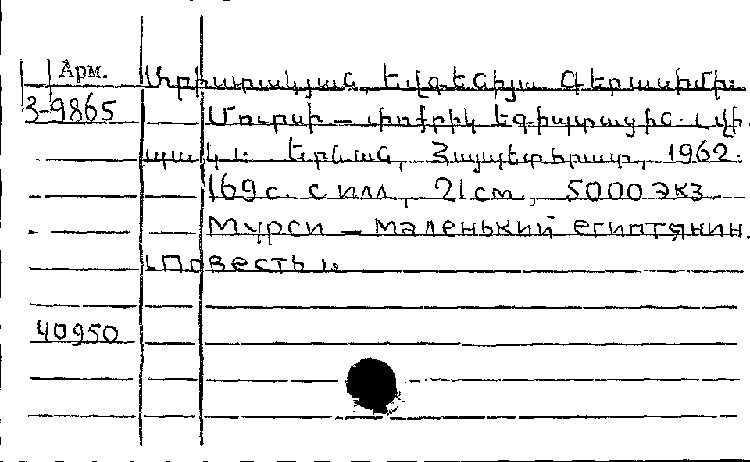 Арм.
Միրիջանյան, Եվգենիյա Գերասիմի.
3-9865
Մուրսի – փոքրիկ եգիպտացին. (Վի
պակ): Երևան, Հայպետհրատ, 1962.
169 с. с илл., 21 см, 5000 экз.
Мурси – маленький египтянин.
(Повесть).
40950